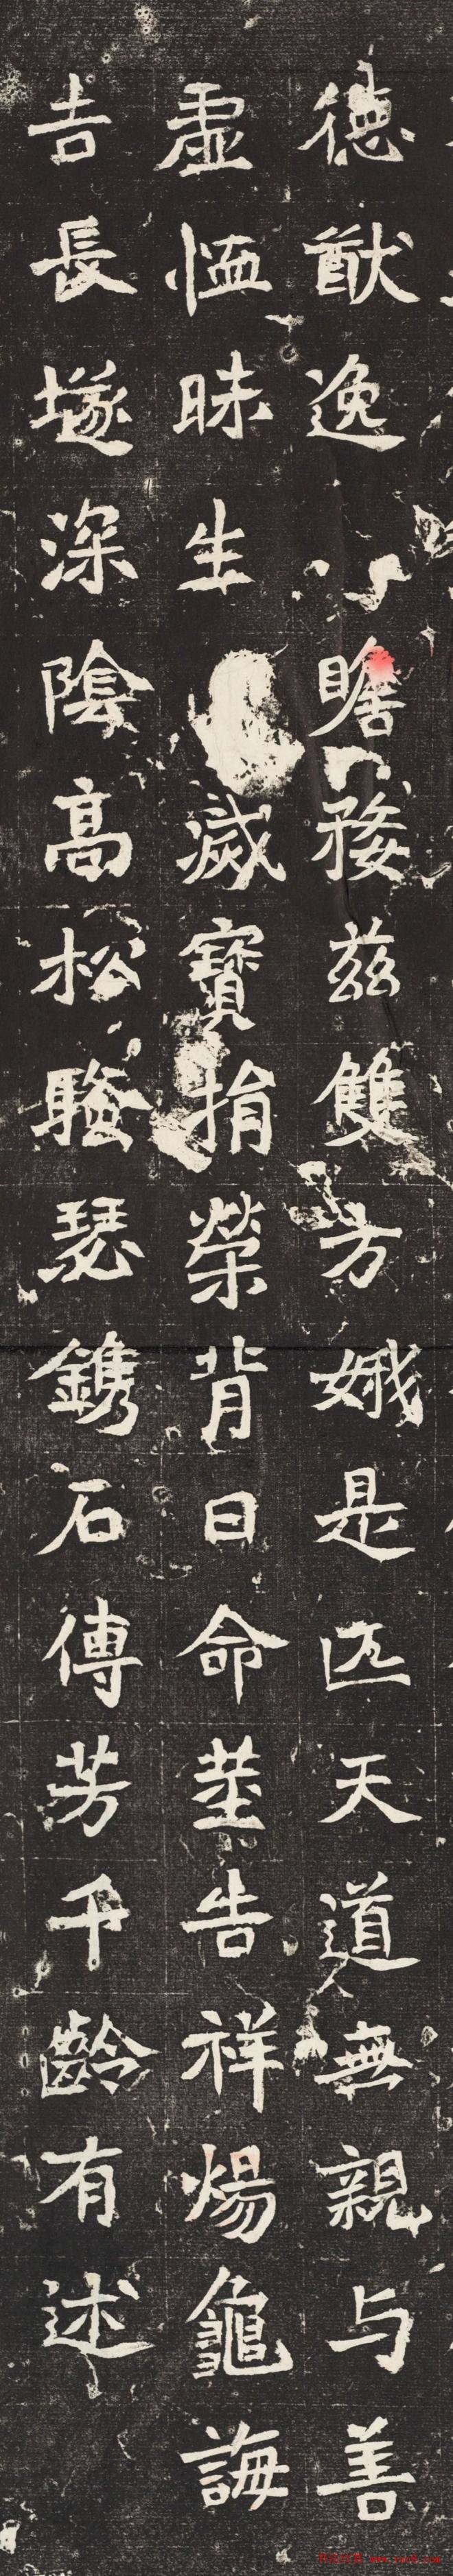 德猷逸□瞻婺兹雙方娥是匹天道無親与善
虛恤昧生□滅寶捐榮背日命蓍告祥煬龜誨
吉長埏深陰高松騷瑟鐫石傳芳千齡有述